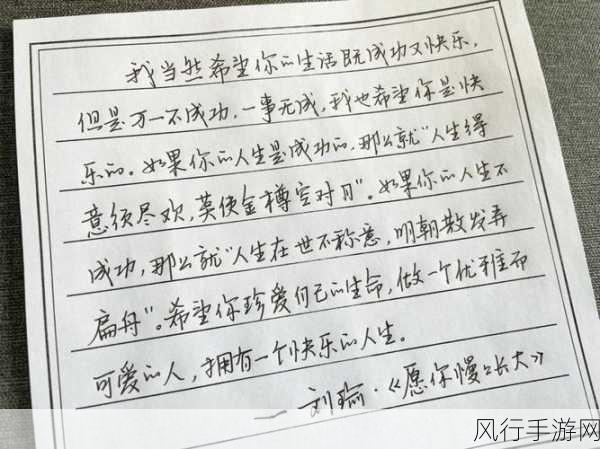 我当然希望你的生活既成功又快乐，
但是万一不成功，一事无成，我也希望你是快
乐的。如果你的人生是成功的，那么就“人生得
意须尽欢，莫使金樽空对月”。如果你的人生不
成功，那么就“人生在世不称意，明朝散发弄
扁舟”。希望你珍爱自己的生命，做一个优雅而
可爱的人，拥有一个快乐的人生。
——刘瑜·《愿你慢慢长大》
风行手游网